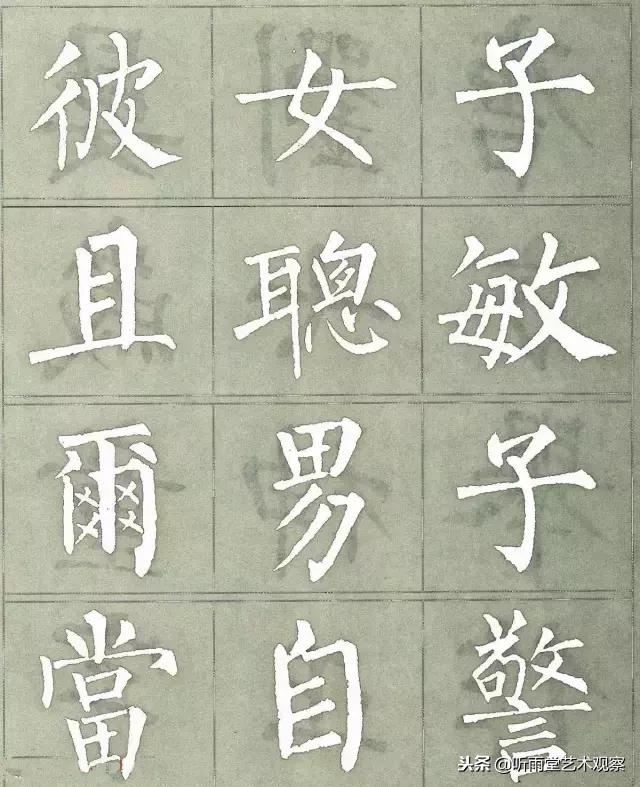 彼女子
且聰敏
爾男子
當自警
头条 @听雨堂艺术观察